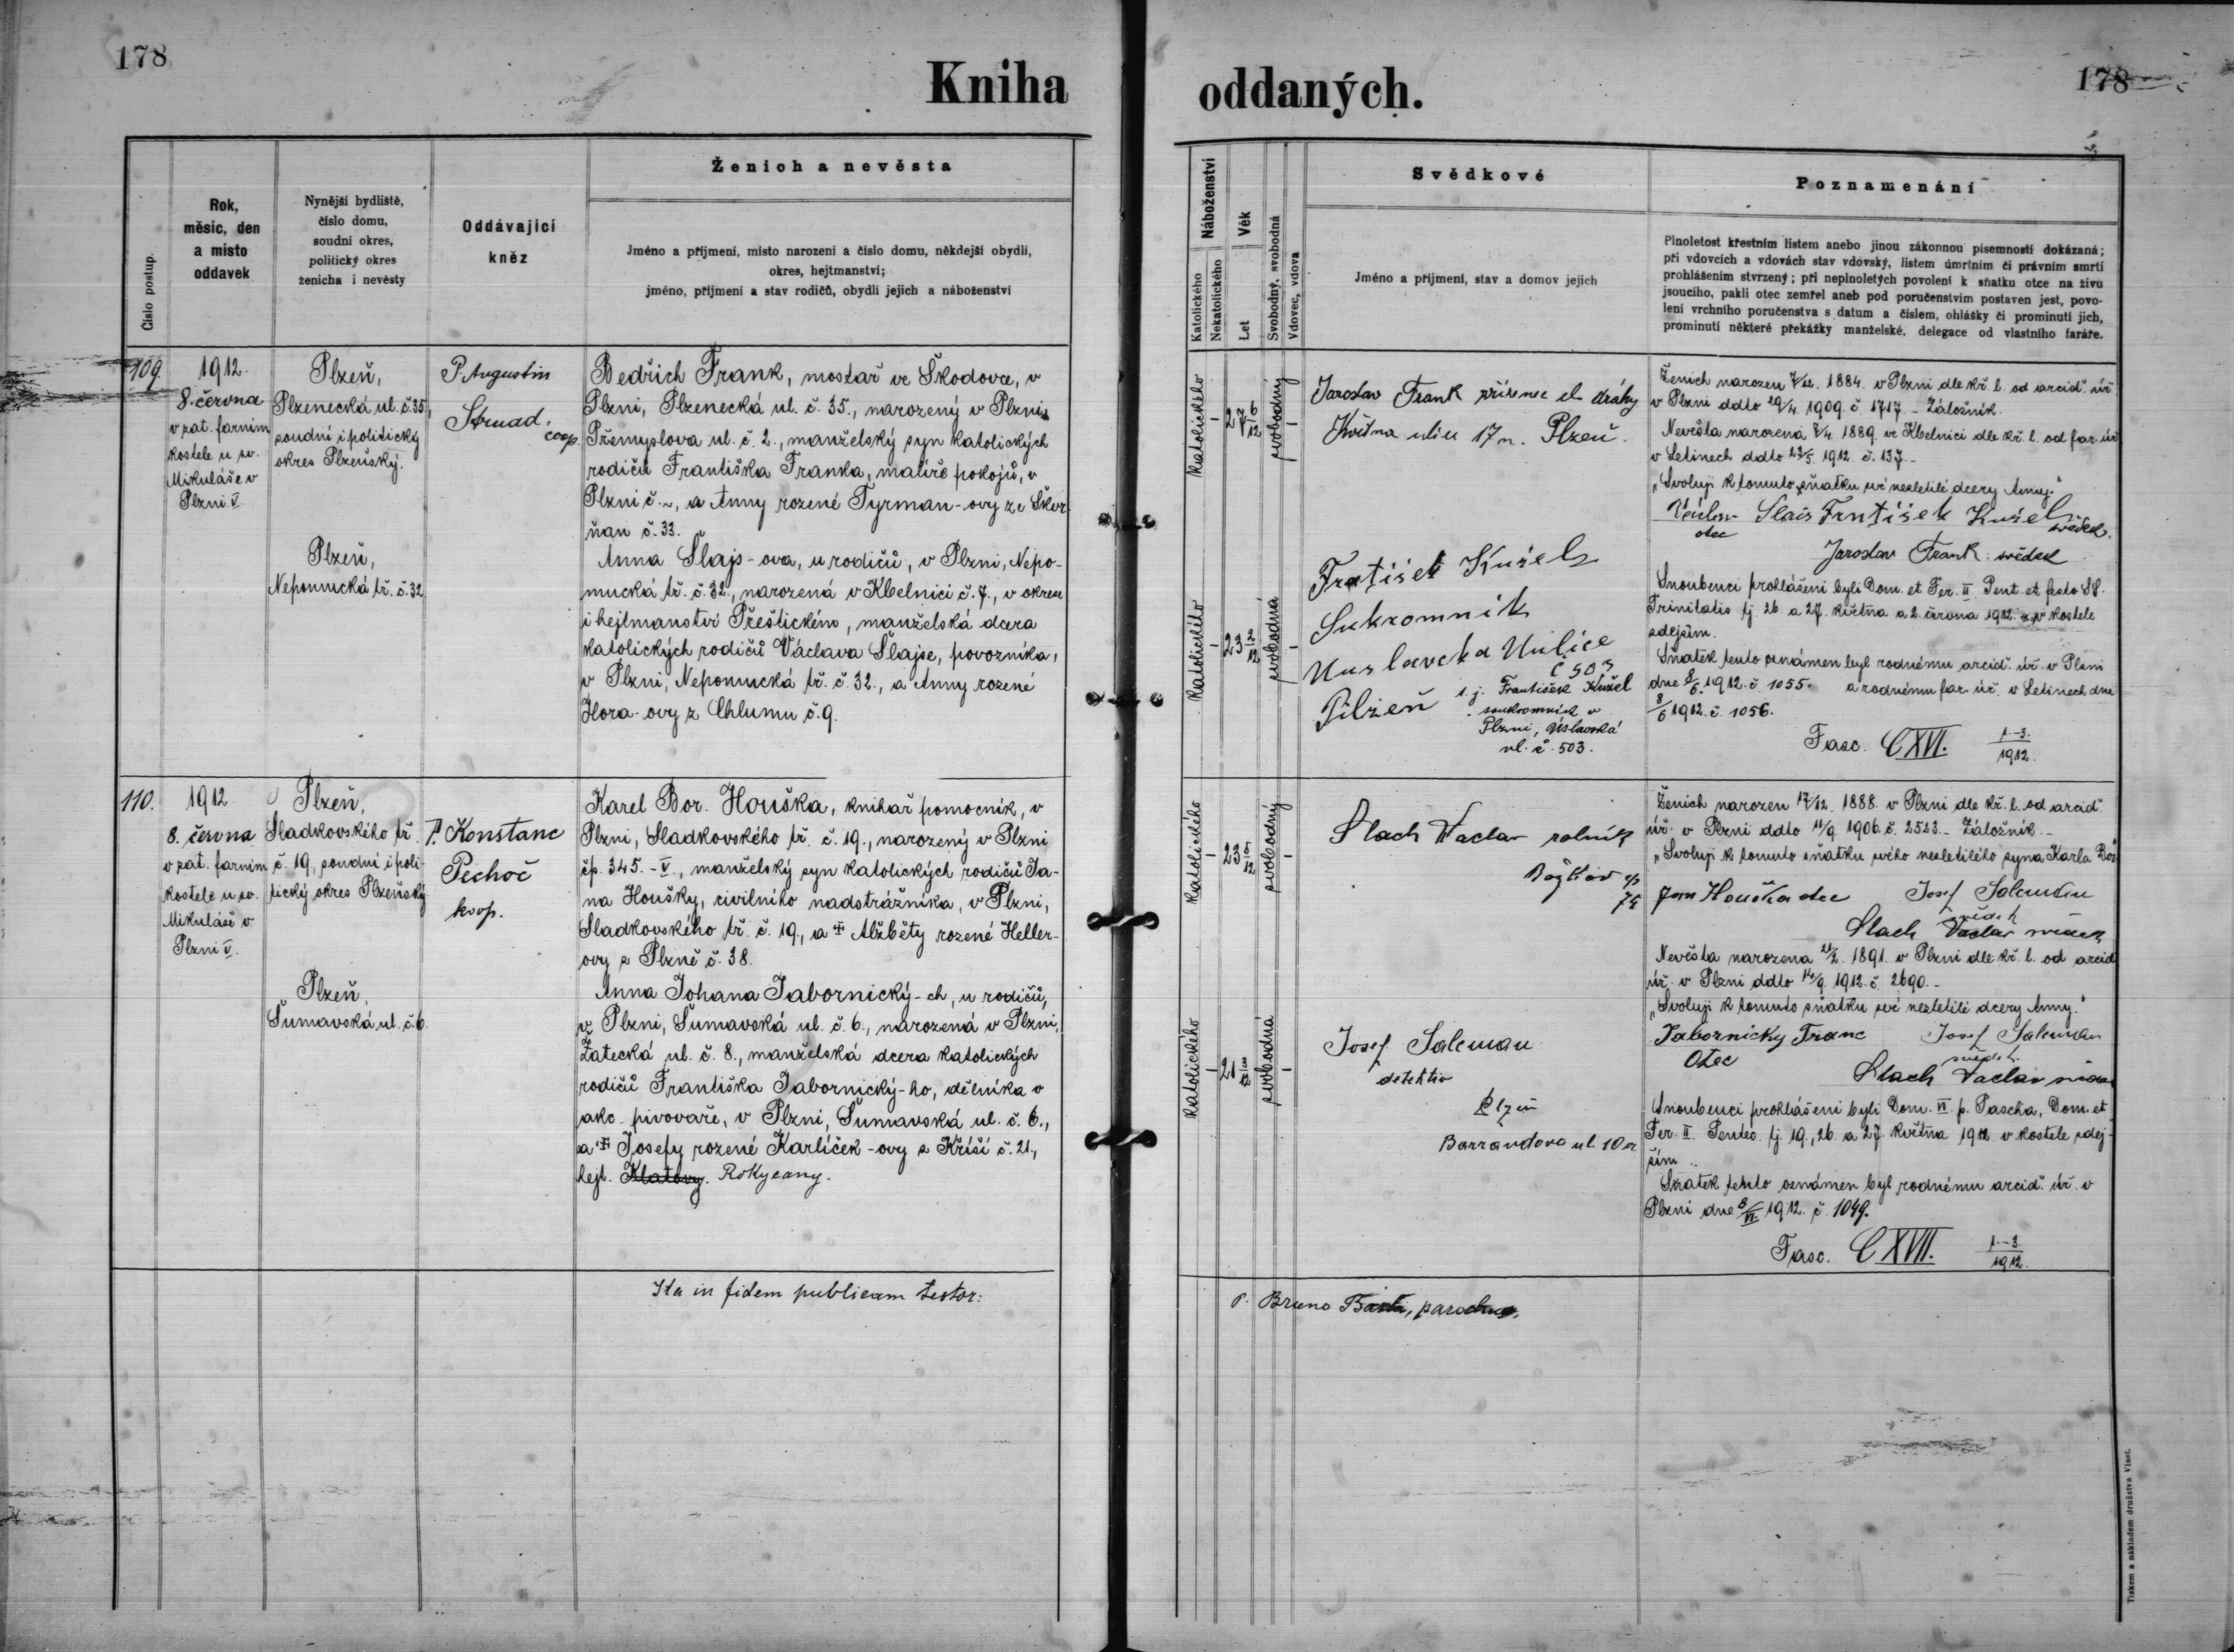 178
178
Kniha oddaných.
Číslo postup.
Rok,
měsíc, den
a místo
oddavek
Nynější bydliště,
číslo domu,
soudní okres,
politický okres
ženicha i nevěsty
Oddávající
kněz
Ženich a nevěsta
Jméno a příjmení, místo narození a číslo domu, někdejší obydlí,
okres, hejtmanství;
jméno, příjmení a stav rodičů, obydlí jejich a náboženství
Náboženství
Katolického
Nekatolického
Věk
Let
Svobodný, svobodná
Vdovec, vdova
Svědkové
Jméno a příjmení, stav a domov jejich
Poznamenání
Plnoletost křestním listem anebo jinou zákonnou písemností dokázaná;
při vdovcích a vdovách stav vdovský, listem úmrtním či právním smrti
prohlášením stvrzený; při neplnoletých povolení k sňatku otce na živu
jsoucího, pakli otec zemřel aneb pod poručenstvím postaven jest, povo-
lení vrchního poručenstva s datum a číslem, ohlášky či prominutí jich,
prominutí některé překážky manželské, delegace od vlastního faráře.
109
1912.
8. června
v zat. farním
kostele u sv.
Mikuláše v
Plzni V.
Plzeň,
Plzenecká ul. č. 35,
soudní i politický
okres Plzeňský.
Plzeň,
Nepomucká tř. č. 32
P. Augustin
Strnad,
coop.
Bedřich Frank, mostař ve Škodovce, v
Plzni, Plzenecká ul. č. 35., narozený v Plzni,
Přemyslova ul. č. 2., manželský syn katolických
rodičů Františka Franka, malíře pokojů, v
Plzni č. ~, a Anny rozené Tyrman-ovy ze Škvr-
ňan č. 33.
Anna Šlajs-ova, u rodičů, v Plzni, Nepo-
mucká tř. č. 32., narozená v Kbelnici č. 7., v okrese
i hejtmanství Přeštickém, manželská dcera
katolických rodičů Václava Šlajse, povozníka,
v Plzni, Nepomucká tř. č. 32., a Anny rozené
Hora-ovy z Chlumu č. 9.
Katolického
27 6/12
svobodný
Katolického
23 2/12
svobodná
Jaroslav Frank zřízenec el. dráhy
Května ulice 17 n. Plzeň.
Fratišek Kužel
Sukromník
Uuslavcka Uulice
č 503
Pilzeň
t. j. František Kužel
soukromník v
Plzni, Úslavská
ul. č. 503.
Ženich narozen 7/12. 1884. v Plzni dle kř. l. od arcid. úř.
v Plzni ddto 29/4. 1909. č. 1717. - Záložník.
Nevěsta narozená 7/4 1889. ve Kbelnici dle kř. l. od far. úř.
v Letinech ddto 23/5. 1912. č. 137. -
"Svoluji k tomuto sňatku své nezletilé dcery Anny."
Václav Slais Frntišek Kužel
otec svědek.
Jaroslav Frank: svědek
Snoubenci prohlášeni byli Dom. et Fer. II. Pent. et festo SS.
Trinitatis tj. 26. a 27. května a 2. června 1912. v kostele
zdejším.
Sňatek tento oznámen byl rodnému arcid. úř. v Plzni
dne 8/6. 1912. č. 1055. a rodnému far. úř. v Letinech dne
8/6 1912. č. 1056.
Fasc. CXVI. 1.-3. 1912.
110.
1912
8. června
v zat. farním
kostele u sv.
Mikuláše v
Plzni V.
Plzeň,
Sladkovského tř.
č. 19., soudní i poli-
tický okres Plzeňský
Plzeň,
Šumavská ul. č. 6.
P. Konstanc
Pechoč
koop.
Karel Bor. Houška, knihař pomocník, v
Plzni, Sladkovského tř. č. 19., narozený v Plzni
čp. 345. - V., manželský syn katolických rodičů Ja-
na Houšky, civilního nadstrážníka, v Plzni,
Sladkovského tř. č. 19., a ✝ Alžběty rozené Heller-
ovy z Plzně č. 38.
Anna Johana Jabornický-ch, u rodičů,
v Plzni, Šumavská ul. č. 6., narozená v Plzni,
Žatecká ul. č. 8., manželská dcera katolických
rodičů Františka Jabornický-ho, dělníka v
akc. pivovaře, v Plzni, Šumavská ul. č. 6.,
a ✝ Josefy rozené Karlíček-ovy z Kříší č. 21.,
hejt. Klatovy. Rokycany.
Katolického
23 5/12
svobodný
Katolického
21 3/12
svobodná
Slach Vaclav rolník
Božkov čp
74
Josef Saleman
detektiv
Plzeň
Barrandova ul. 10
Ženich narozen 17/12. 1888. v Plzni dle kř. l. od arcid.
úř. v Plzni ddto 11/9. 1906. č. 2523. - Záložník. -
"Svoluji k tomuto sňatku svého nezletilého syna Karla Bor."
Jan Houška otec Josef Saleman
svědek
Slach Vaclav svědek
Nevěsta narozena 21/2. 1891. v Plzni dle kř. l. od arcid.
úř. v Plzni ddto 14/9. 1912. č. 2690. -
"Svoluji k tomuto sňatku své nezletilé dcery Anny."
Jabornicky Franc Josef Saleman
Otec svědek.
Slach Vaclav svědek
Snoubenci prohlášeni byli Dom. VI. p. Pascha, Dom. et
Fer. II. Pentec. tj. 19., 26. a 27. května 1912. v kostele zdej-
ším.
Sňatek tento oznámen byl rodnému arcid. úř. v
Plzni dne 8/VI. 1912. č. 1049.
Fasc. CXVII. 1.-3. 1912.
Ita in fidem publicam testor:
P. Bruno Barta, parochus.
Tiskem a nákladem družstva Vlast.